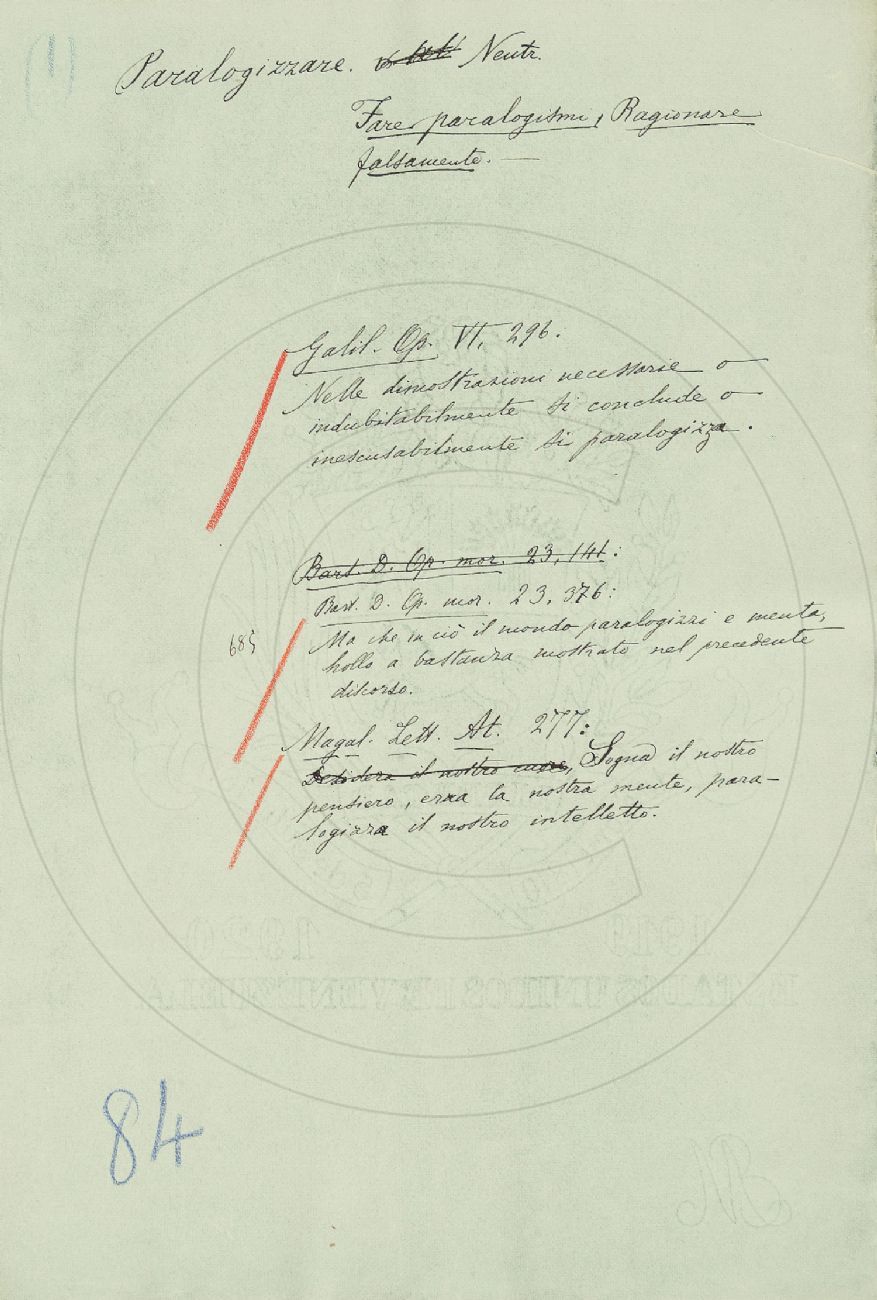 (1)
Paralogizzare. Neutr.
Fare paralogismi, Ragionare
falsamente. —
Galil. Op. VI, 296.
Nelle dimostrazioni necessarie o
indubitabilmente si conclude o
inescusabilmente si paralogizza.
Bart. D. Op. mor. 23, 141:
Bart. D. Op. mor. 23, 376:
685
Ma che in ciò il mondo paralogizzi e menta,
hollo a bastanza mostrato nel precedente
discorso.
Magal. Lett. At. 277:
Desidera il nostro cuore, Sogna il nostro
pensiero, erra la nostra mente, para-
logizza il nostro intelletto.
1919 1920
ESTADOS UNIDOS DE VENEZUELA
84